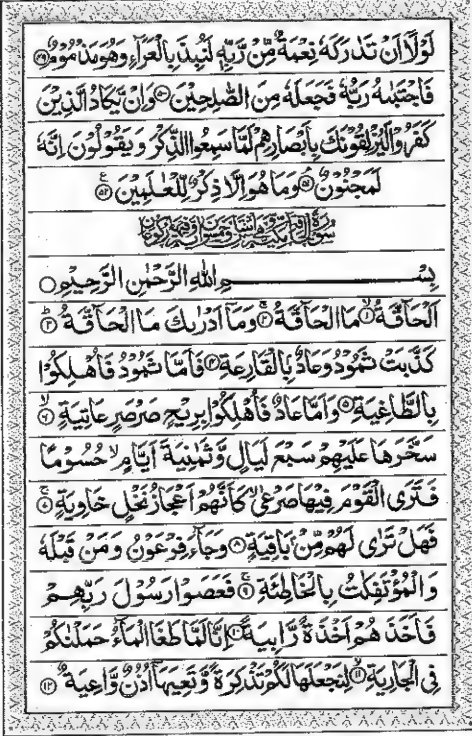 لَوْلَآ اَنْ تَدٰرَكَهٗ نِعْمَةٌ مِّنْ رَّبِّهٖ لَنُبِذَ بِالْعَرَآءِ وَهُوَ مَذْمُوْمٌ ۴۹
فَاجْتَبٰىهُ رَبُّهٗ فَجَعَلَهٗ مِنَ الصّٰلِحِيْنَ ۵۰ وَاِنْ يَّكَادُ الَّذِيْنَ
كَفَرُوْا لَيُزْلِقُوْنَكَ بِاَبْصَارِهِمْ لَمَّا سَمِعُوا الذِّكْرَ وَيَقُوْلُوْنَ اِنَّهٗ
لَمَجْنُوْنٌ ۵۱ وَمَا هُوَ اِلَّا ذِكْرٌ لِّلْعٰلَمِيْنَ ۵۲
بِسْمِ اللهِ الرَّحْمٰنِ الرَّحِيْمِ
اَلْحَآقَّةُ ۱ مَا الْحَآقَّةُ ۲ وَمَآ اَدْرٰىكَ مَا الْحَآقَّةُ ۳
كَذَّبَتْ ثَمُوْدُ وَعَادٌۢ بِالْقَارِعَةِ ۴ فَاَمَّا ثَمُوْدُ فَاُهْلِكُوْا
بِالطَّاغِيَةِ ۵ وَاَمَّا عَادٌ فَاُهْلِكُوْا بِرِيْحٍ صَرْصَرٍ عَاتِيَةٍ ۶
سَخَّرَهَا عَلَيْهِمْ سَبْعَ لَيَالٍ وَّثَمٰنِيَةَ اَيَّامٍ ۙ حُسُوْمًا
فَتَرَى الْقَوْمَ فِيْهَا صَرْعٰى ۙ كَاَنَّهُمْ اَعْجَازُ نَخْلٍ خَاوِيَةٍ ۷
فَهَلْ تَرٰى لَهُمْ مِّنْۢ بَاقِيَةٍ ۸ وَجَآءَ فِرْعَوْنُ وَمَنْ قَبْلَهٗ
وَالْمُؤْتَفِكٰتُ بِالْخَاطِئَةِ ۹ فَعَصَوْا رَسُوْلَ رَبِّهِمْ
فَاَخَذَهُمْ اَخْذَةً رَّابِيَةً ۱۰ اِنَّا لَمَّا طَغَا الْمَآءُ حَمَلْنٰكُمْ
فِى الْجَارِيَةِ ۱۱ لِنَجْعَلَهَا لَكُمْ تَذْكِرَةً وَّتَعِيَهَآ اُذُنٌ وَّاعِيَةٌ ۱۲